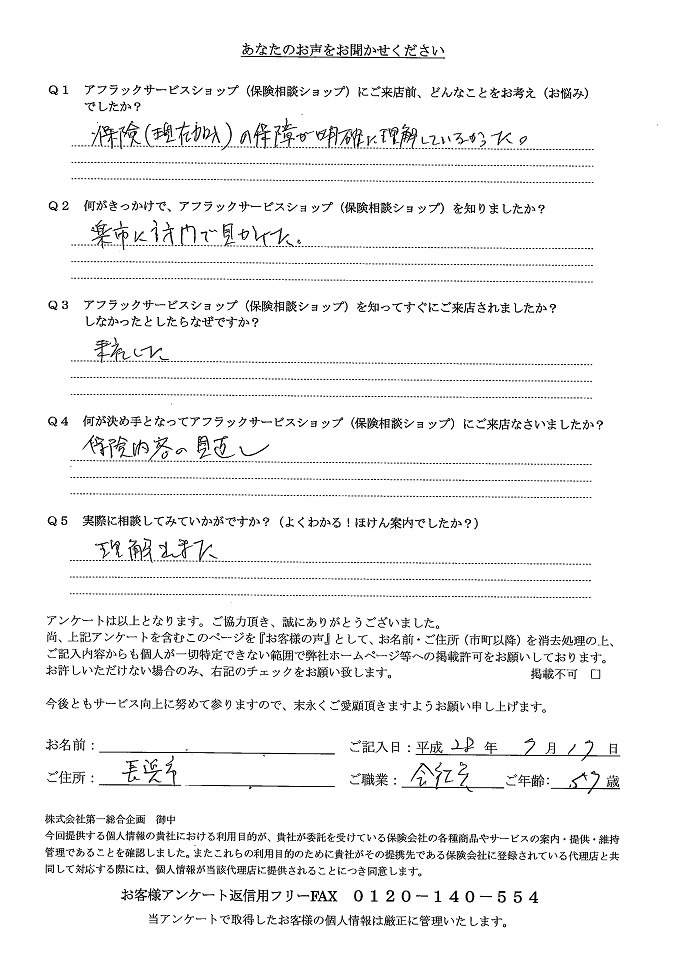 あなたのお声をお聞かせください
Q1 アフラックサービスショップ(保険相談ショップ)にご来店前、どんなことをお考え(お悩み)
でしたか?
保険(現在加入)の保障が明確に理解しているかった。
Q2 何がきっかけで、アフラックサービスショップ(保険相談ショップ)を知りましたか?
楽市に訪門で見かけた。
Q3 アフラックサービスショップ(保険相談ショップ)を知ってすぐにご来店されましたか?
しなかったとしたらなぜですか?
来店した
Q4 何が決め手となってアフラックサービスショップ(保険相談ショップ)にご来店なさいましたか?
保険内容の見直し
Q5 実際に相談してみていかがですか?(よくわかる!ほけん案内でしたか?)
理解出来た
アンケートは以上となります。ご協力頂き、誠にありがとうございました。
尚、上記アンケートを含むこのページを『お客様の声』として、お名前・ご住所(市町以降)を消去処理の上、
ご記入内容からも個人が一切特定できない範囲で弊社ホームページ等への掲載許可をお願いしております。
お許しいただけない場合のみ、右記のチェックをお願い致します。 掲載不可 □
今後ともサービス向上に努めて参りますので、末永くご愛顧頂きますようお願い申し上げます。
お名前: ご記入日:平成 28 年 9 月 17 日
ご住所: 長浜市 ご職業: 会社員 ご年齢: 57 歳
株式会社第一総合企画 御中
今回提供する個人情報の貴社における利用目的が、貴社が委託を受けている保険会社の各種商品やサービスの案内・提供・維持
管理であることを確認しました。またこれらの利用目的のために貴社がその提携先である保険会社に登録されている代理店と共
同して対応する際には、個人情報が当該代理店に提供されることにつき同意します。
お客様アンケート返信用フリーFAX 0120-140-554
当アンケートで取得したお客様の個人情報は厳正に管理いたします。